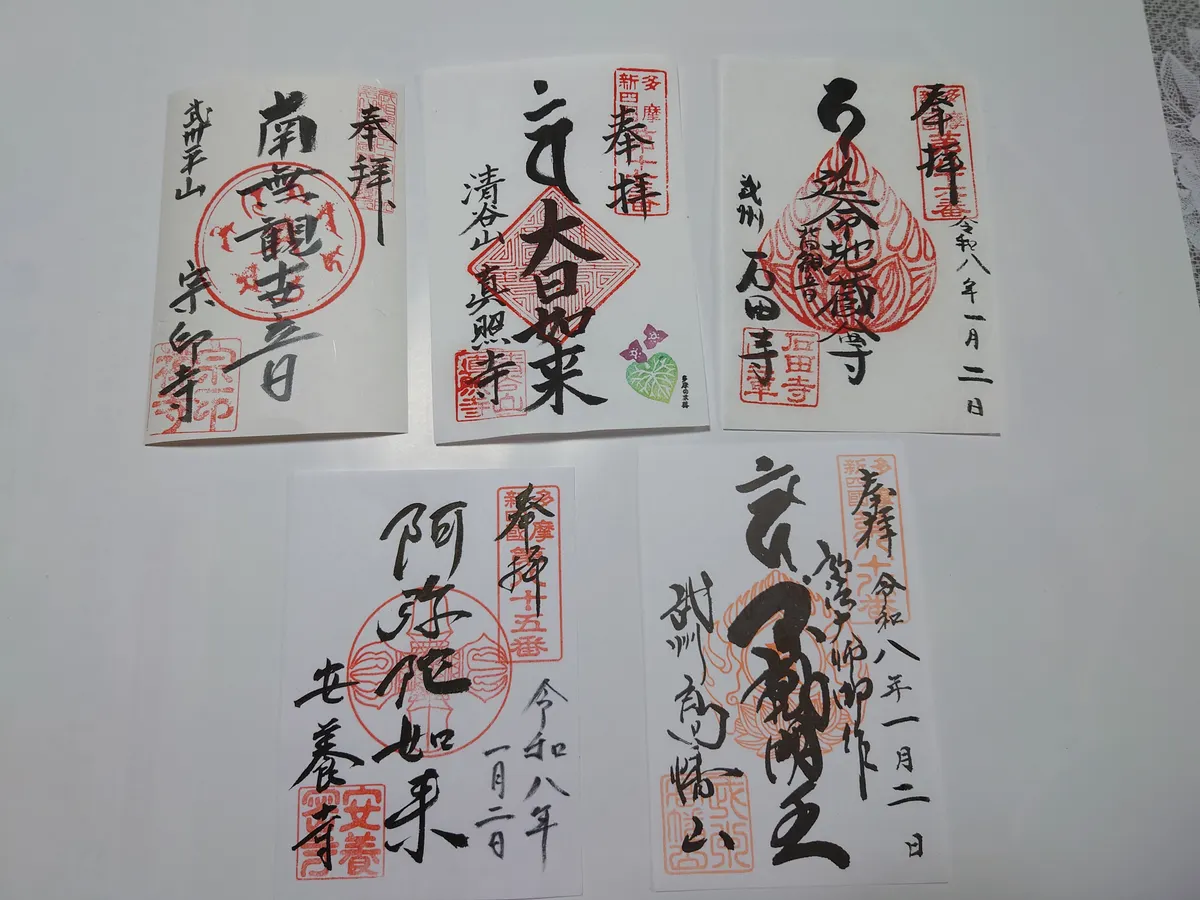 奉拝
南無観世音
武州平山
宗印寺
多摩
新四国
奉拝
大日如来
清谷山
真照寺
多摩
奉拝
令和八年一月二日
延命地蔵尊
武州
石田寺
石田寺
多摩
新四國
十五番
奉拝
令和八年
一月二日
阿弥陀如来
安養寺
安養
多摩
新四國
奉拝
令和八年一月二日
弘法大師御作
不動明王
武州高幡山